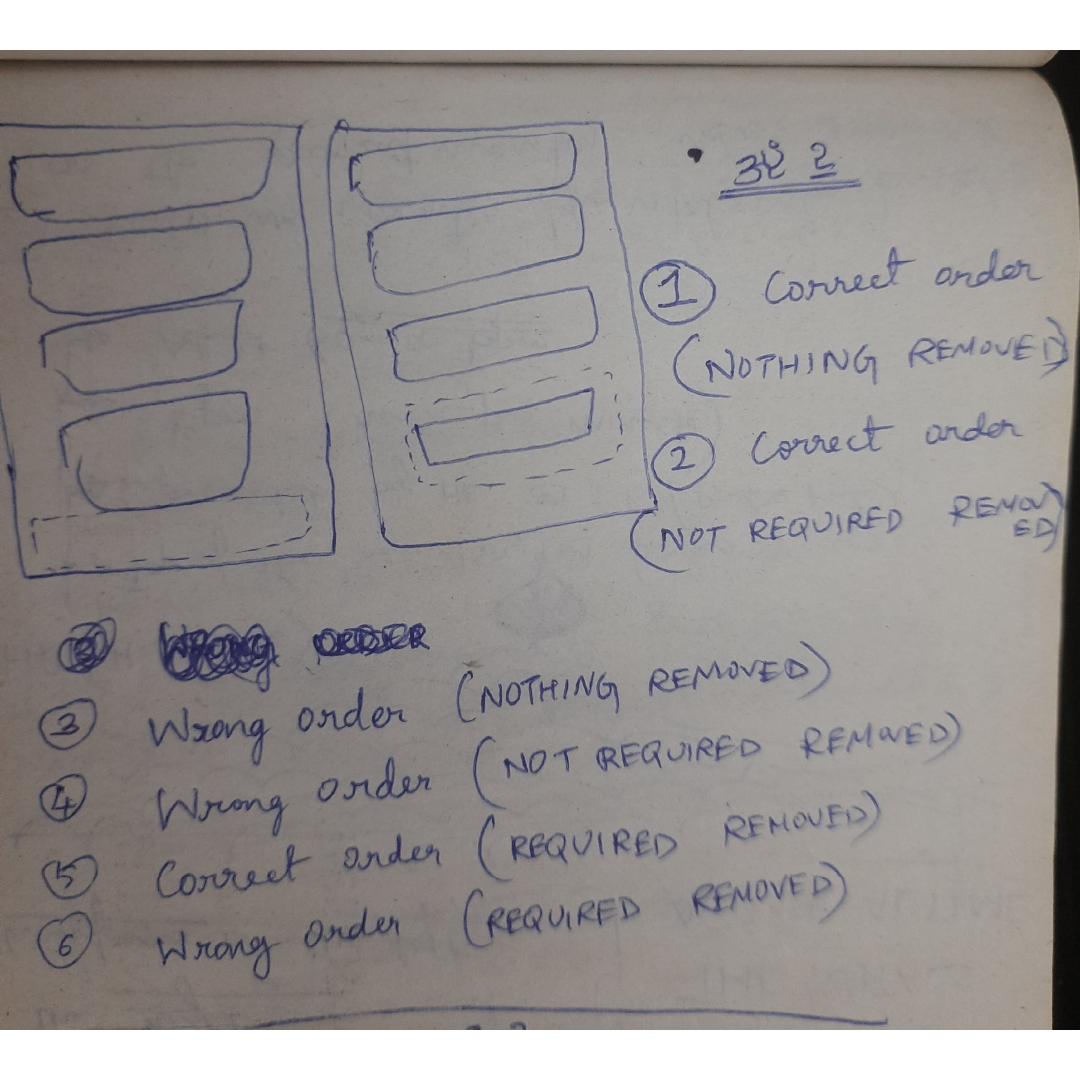 ① Correct order
(NOTHING REMOVED)
② Correct order
(NOT REQUIRED REMOV
ED)
③ Wrong order (NOTHING REMOVED)
④ Wrong order (NOT REQUIRED REMOVED)
⑤ Correct order (REQUIRED REMOVED)
⑥ Wrong order (REQUIRED REMOVED)